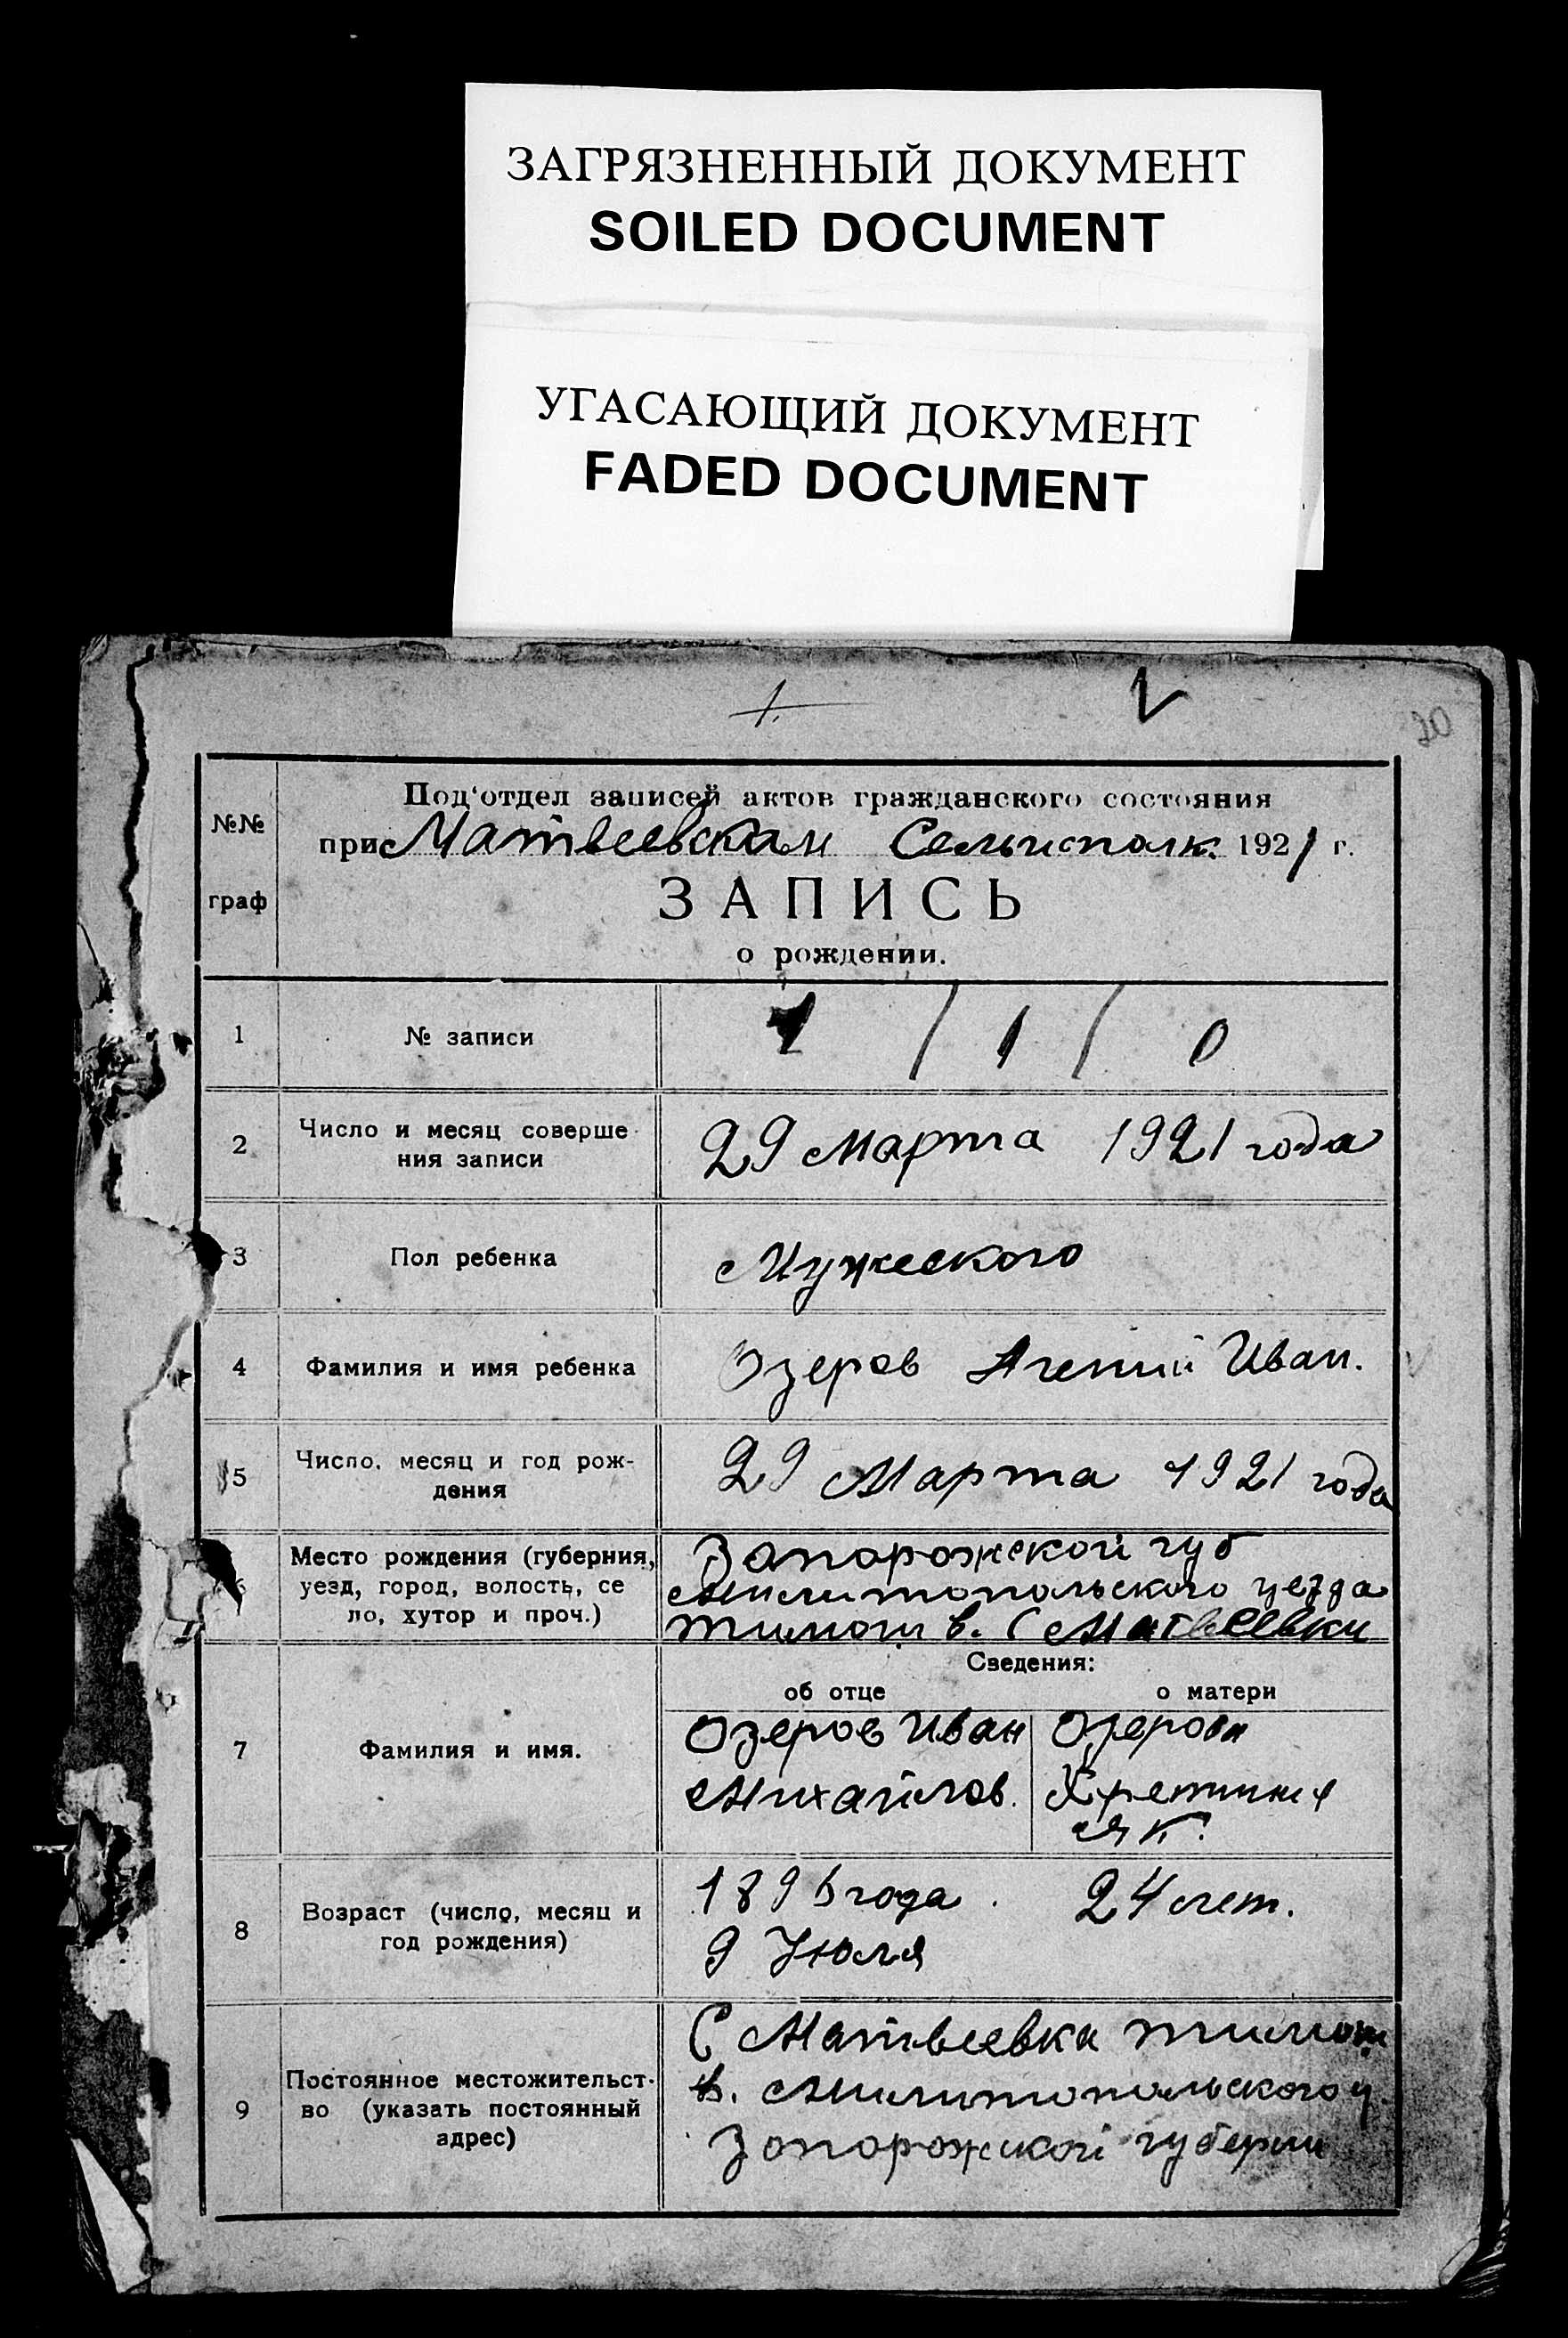 ЗАГРЯЗНЕННЫЙ ДОКУМЕНТ
SOILED DOCUMENT
УГАСАЮЩИЙ ДОКУМЕНТ
FADED DOCUMENT
1.
20
№№
граф
Под'отдел записей актов гражданского состояния
при Матвеевскам Сельисполк. 1921 г.
ЗАПИСЬ
о рождении.
1 № записи 1 / 1 / 0
2 Число и месяц соверше-
ния записи
29 Марта 1921 года
3 Пол ребенка Мужеского
4 Фамилия и имя ребенка Озеров Иван.
5 Число, месяц и год рож-
дения
29 Марта 1921 года
6 Место рождения (губерния,
уезд, город, волость, се
ло, хутор и проч.)
Запорожской губ
Милитопольского уезда
Тимош в. С Матвеевки
Сведения:
об отце о матери
7 Фамилия и имя.
Озеров Иван
Михайлов.
Озерова
Як.
8 Возраст (число, месяц и
год рождения)
года.
9 Июля
24 лет.
9 Постоянное местожительст-
во (указать постоянный
адрес)
С Матвеевка Тимош
в. Милитопольского у
Запорожской губернии